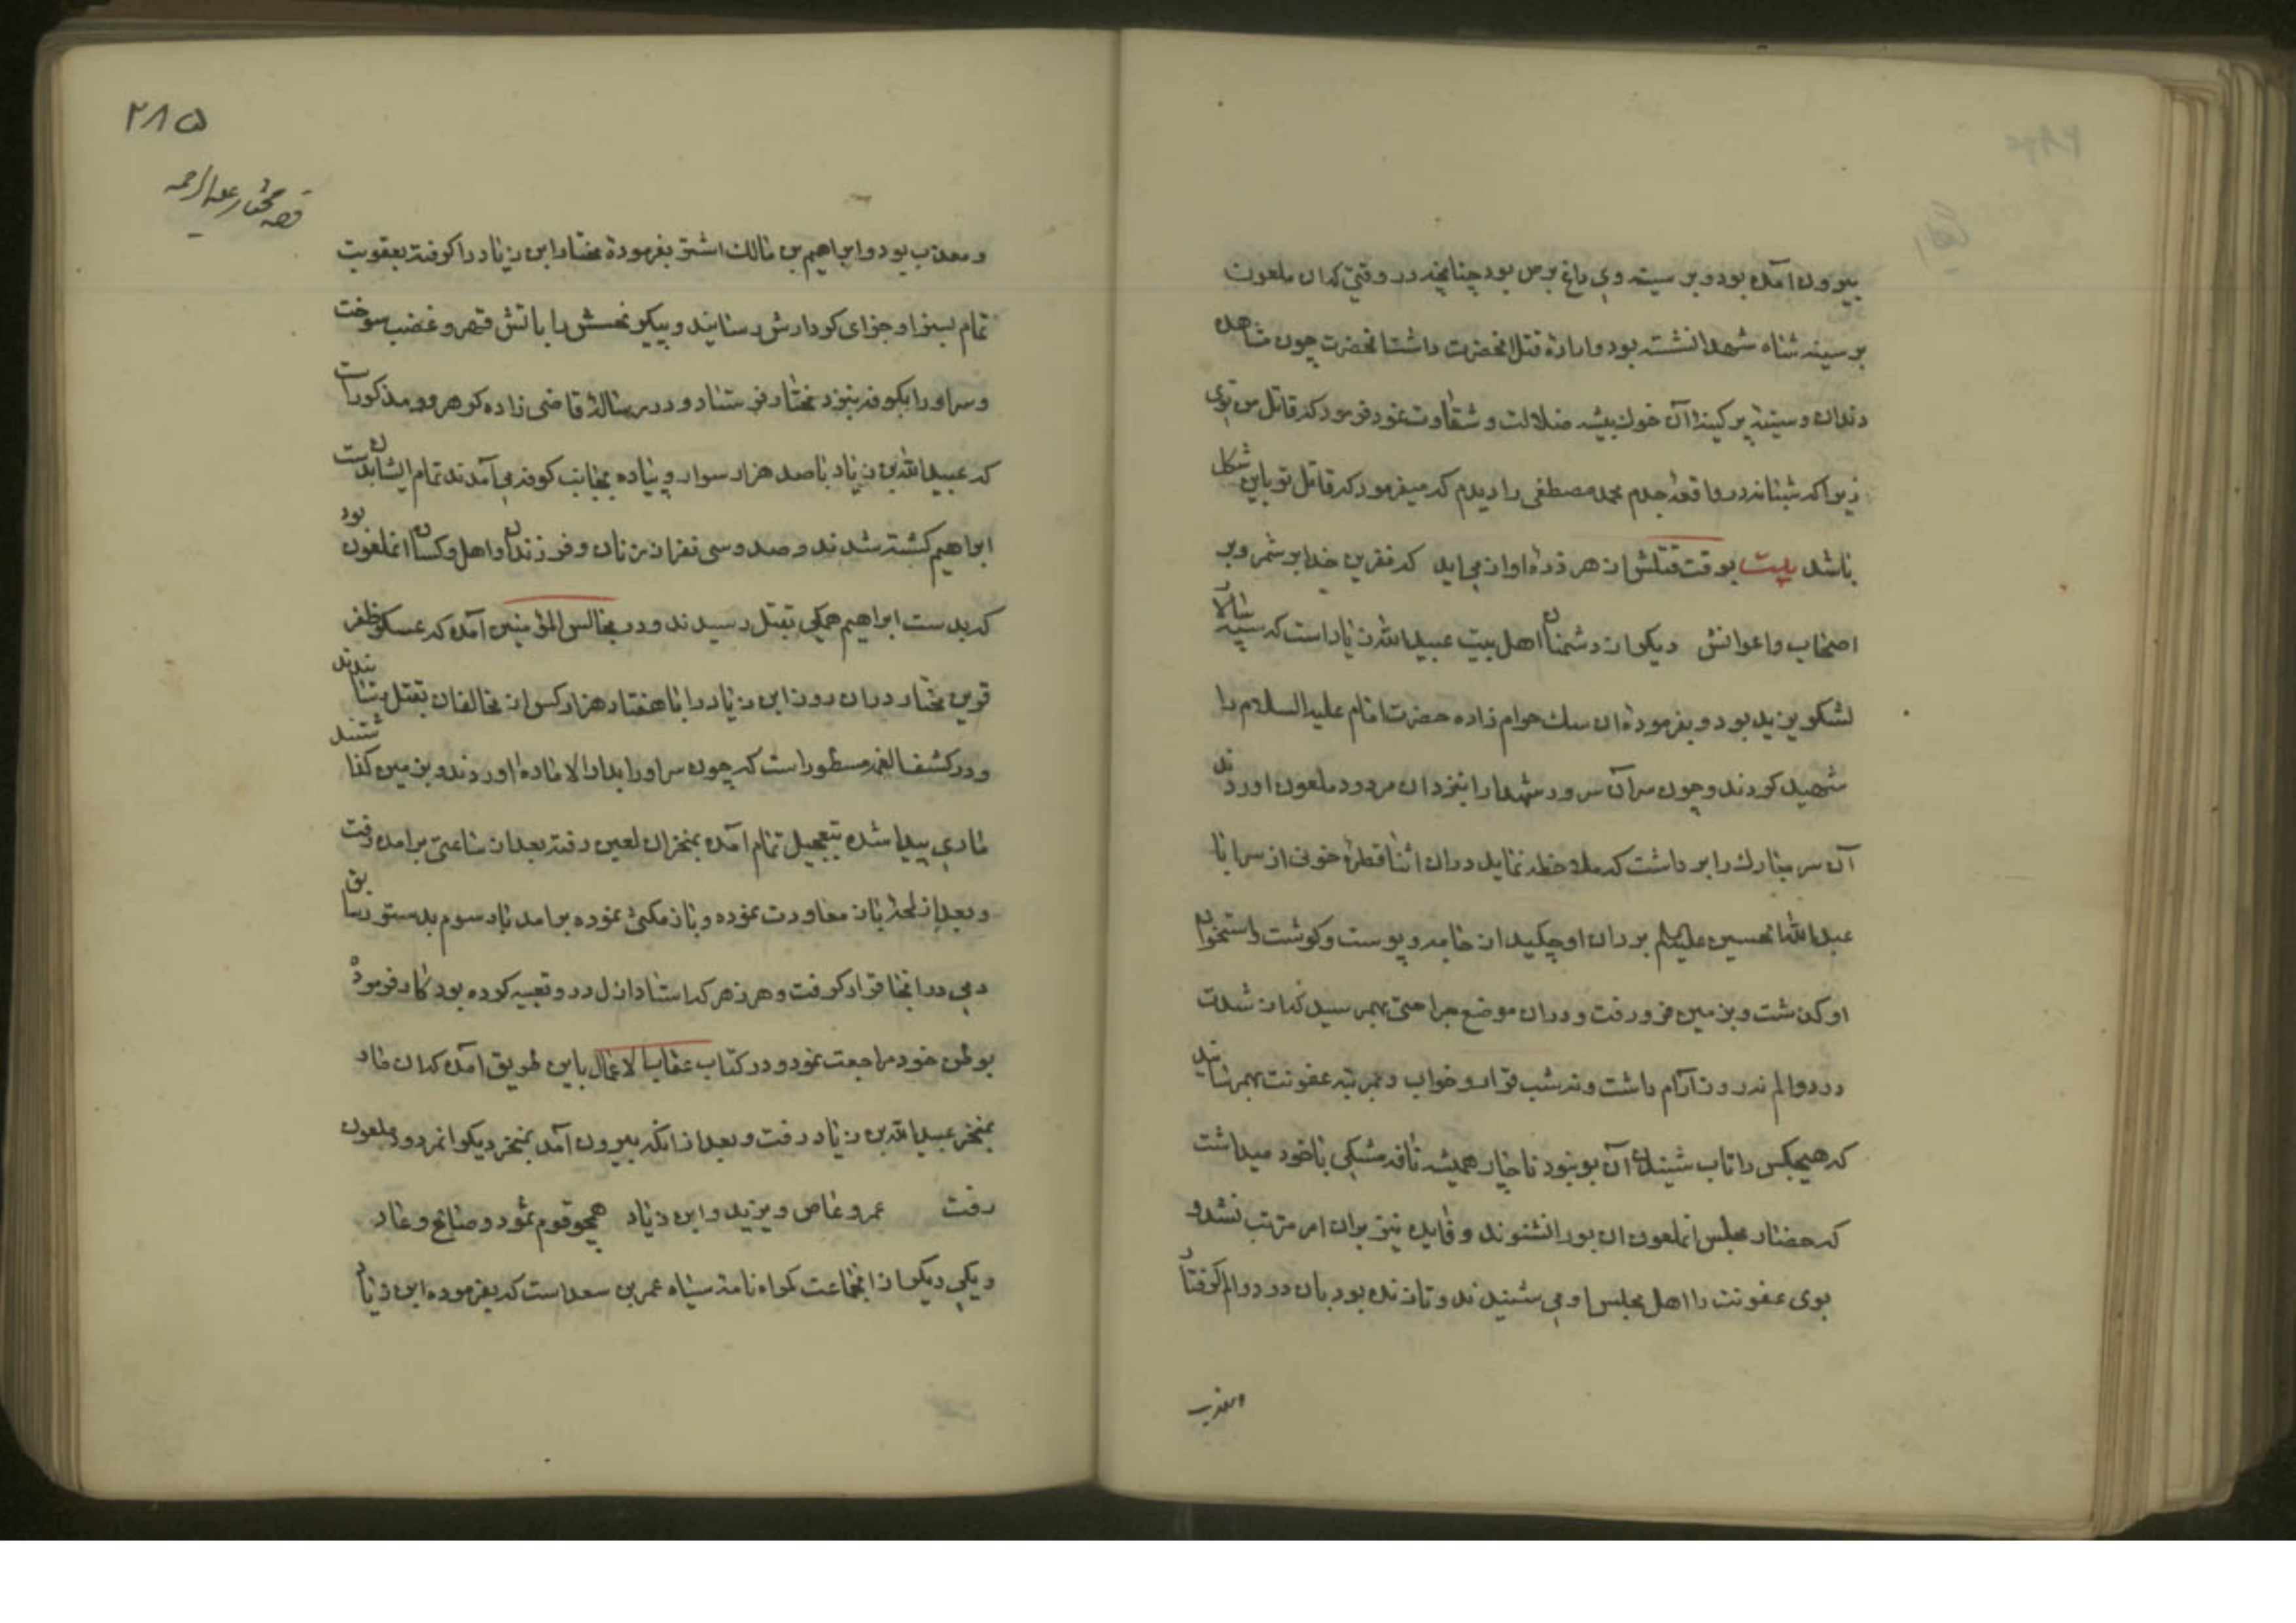 بیرون آمده بود و بر سینه وی داغ برص بود چنانچه در وقتی که ان ملعون
بر سینه شاه شهدا نشسته بود و اراده قتل انحضرت داشت انحضرت چون مشاهده
دندان و سینه پر کینه آن خوک پیشه ضلالت و شقاوت نمود فرمود که قاتل من توی
زیرا که شبانه در واقعه جدم محمد مصطفی را دیدم که میفرمود که قاتل تو باین شکل
باشد بیت بوقت قتلش از هر ذره اواز می اید که نفرین خدا بر شمر و بر
اصحاب و اعوانش دیکر از دشمنان اهل بیت عبیدالله زیاد است که سپه سالار
لشکر یزید بود و بفرموده ان سک حرام زاده حضرت امام علیه السلام را
شهید کردند و چون سر آن سرور شهدا را بنزد ان مردود ملعون اوردند
آن سر مبارک را بر داشت که ملاحظه نماید در ان اثنا قطرهٔ خونی از سر ابا
عبدالله الحسین علیه السلام بر ران او چکید از جامه و پوست و کوشت و استخوان
او کذشت و بزمین فرو رفت و در ان موضع جراحتی بهم رسید که از شدت
درد و الم نه روز آرام داشت و نه شب قرار و خواب و بمرتبه عفونت بهم رسانید
که هیچکس را تاب شنیدن آن بو نبود ناچار همیشه نافه مشکی با خود میداشت
که حضار مجلس انملعون ان بو را نشنوند و فایده نیز بر ان امر مترتب نشد و
بوی عفونت را اهل مجلس او می شنیدند و تا زنده بود بان درد و الم کرفتار
و معذب
۲۸۵
قصه مختار علیه الرحمه
و معذب بود و ابراهیم بن مالک اشتر بفرمودهٔ مختار ابن زیاد را کرفته بعقوبت
تمام بسزا و جزای کردارش رسانیدند و پیکر نحسش را باتش قهر و غضب سوخت
و سر او را بکوفه بنزد مختار فرستاد و در رساله قاضی زاده کوهرود مذکور است
که عبیدالله بن زیاد با صد هزار سوار و پیاده بجانب کوفه می آمدند تمام ایشان بدست
ابراهیم کشته شدند و صد و سی نفر از زنان و فرزندان و اهل و کسان انملعون بود
که بدست ابراهیم همکی بقتل رسیدند و در مجالس المؤمنین آمده که عسکر ظفر
قرین مختار در ان روز ابن زیاد را با هفتاد هزار کس از مخالفان بقتل رسانیدند
و در کشف الغمه مسطور است که چون سر او را بدار الاماره اوردند و بزمین کذاشتند
ماری پیدا شده بتعجیل تمام آمده بمنخر ان لعین رفته بعد از ساعتی برامده رفت
و بعد از لحظه باز معاودت نموده و باز مکثی نموده برامد بار سوم بدستور سابق
دمی در انجا قرار کرفت و هر زهر که استاد ازل در و تعبیه کرده بود بکار فرموده
بوطن خود مراجعت نمود و در کتاب عقاب الاعمال باین طریق امده که ان مار
بمنخر عبیدالله بن زیاد رفت و بعد از انکه بیرون آمد بمنخر دیکر انمردود ملعون
رفت عمرو عاص و یزید و ابن زیاد همچو قوم ثمود و صالح و عاد
و یکی دیکر از انجماعت کمراه نامه سیاه عمر بن سعد است که بفرموده ابن زیاد